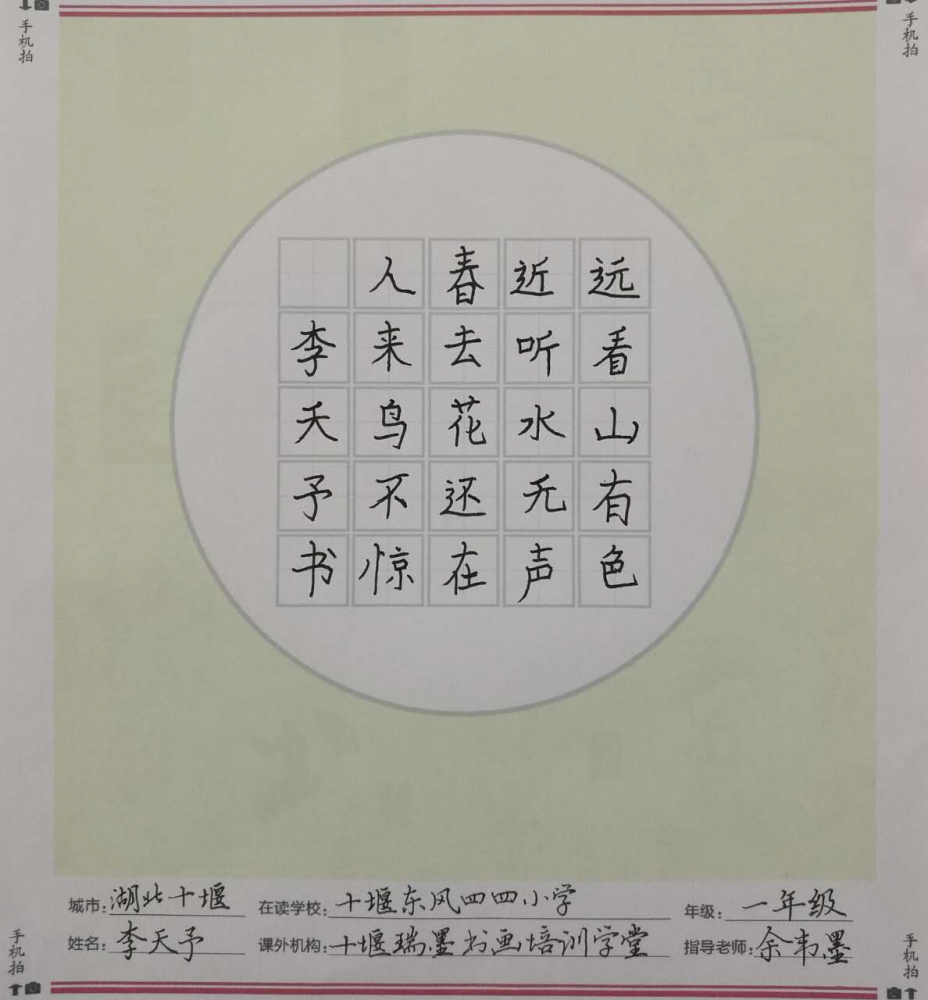 手机拍
手机拍
远看山有色
近听水无声
春去花还在
人来鸟不惊
李天予书
城市:湖北十堰
在读学校:十堰东风四四小学
年级:一年级
姓名:李天予
课外机构:十堰瑞墨书画培训学堂
指导老师:余韦墨
手机拍
手机拍